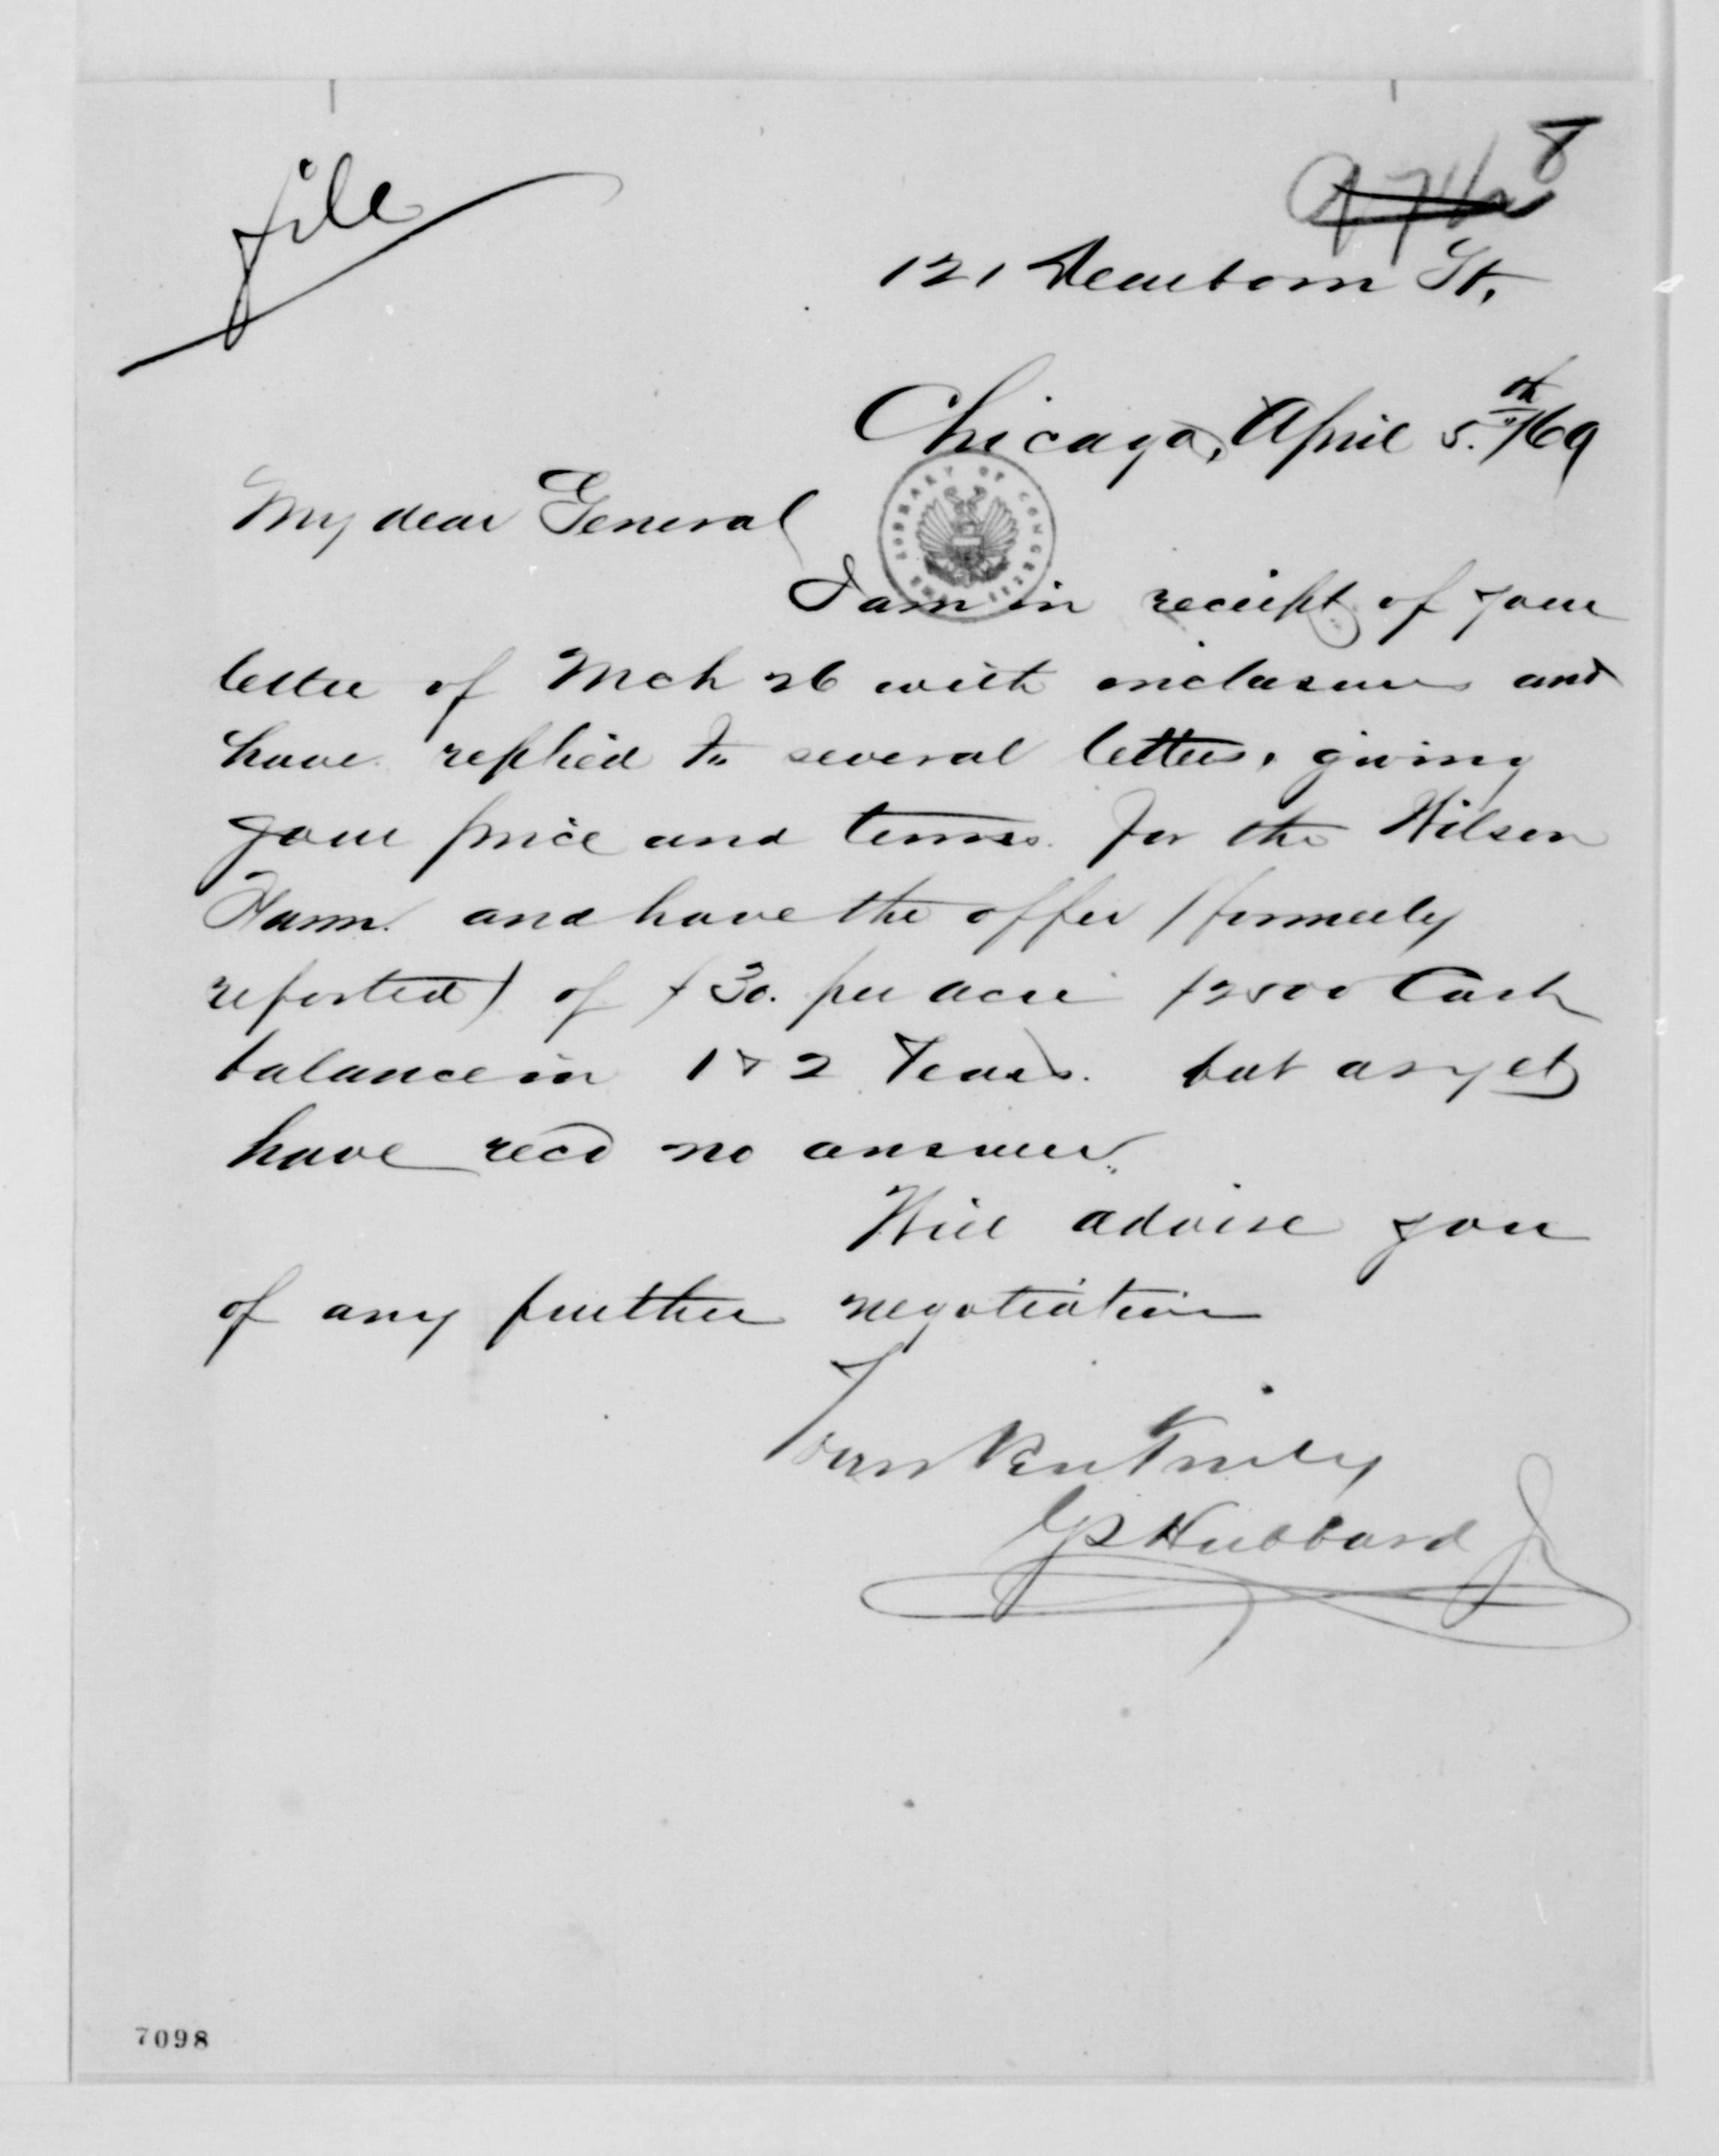 file
8
121 Dearborn St,
Chicago, April 5.th /69
My dear General
I am in receipt of your
letter of Mch 26 with inclosures and
have replied to several letters, giving
your price and terms for the Wilson
Farm. and have the offer (formerly
reported) of $30. per acre $2500 Cash
balance in 1 & 2 Years. but as yet
have recd no answer.
Will advise you
of any further negotiation
Yours Very Truly
GS Hubbard Jr
LIBRARY OF CONGRESS
7098